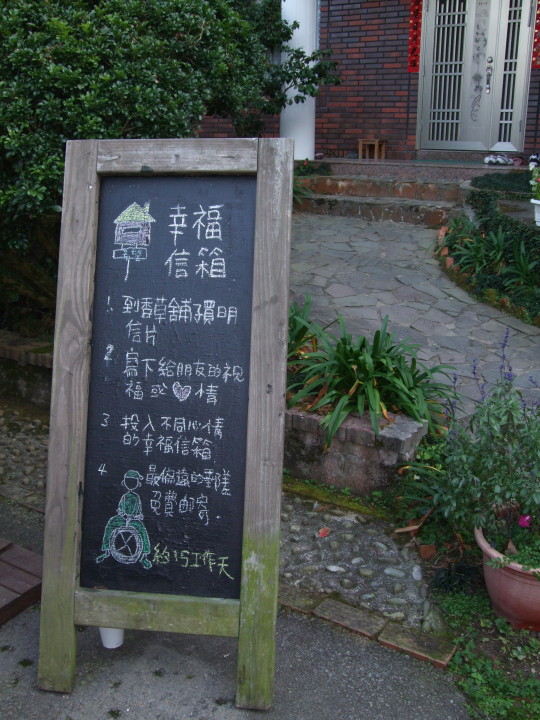 幸福
信箱
1. 到香草舖買明
信片
2. 寫下給朋友的祝
福或♡情
3 投入不同心情
的幸福信箱
4. 最偏遠的郵差
免費郵寄.
約15工作天